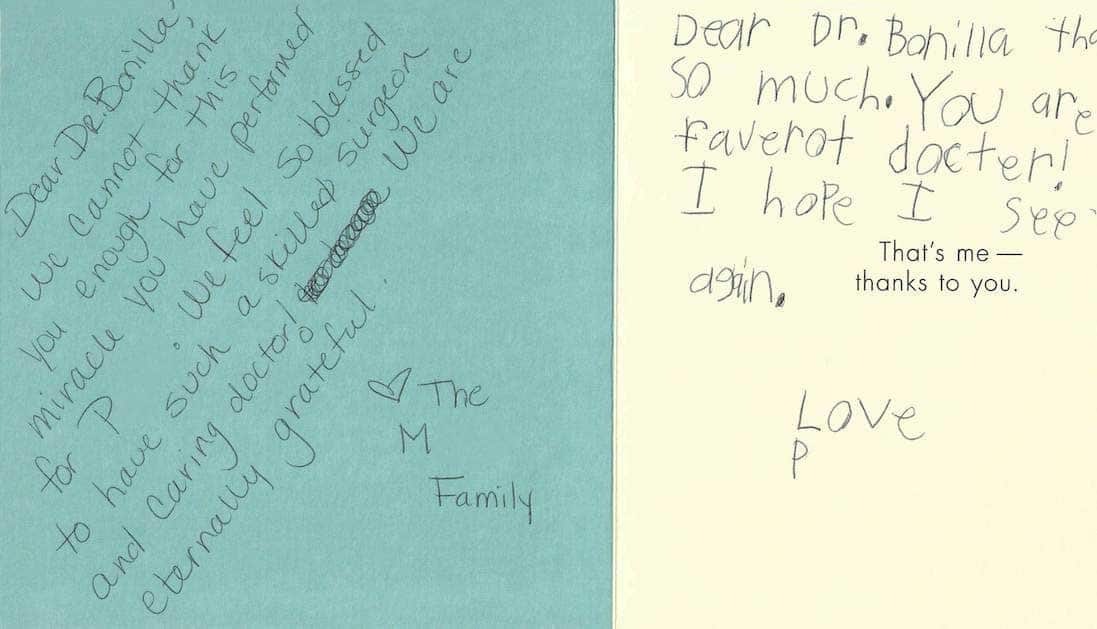 Dear Dr. Bonilla,
We cannot thank
you enough for this
miracle you have performed
for P. We feel so blessed
to have such a skilled surgeon
and caring doctor! We are
eternally grateful.
♡ The
M
Family
Dear Dr. Bonilla tha
so much. You are
faverot docter!
I hope I see
again.
That's me —
thanks to you.
Love
P